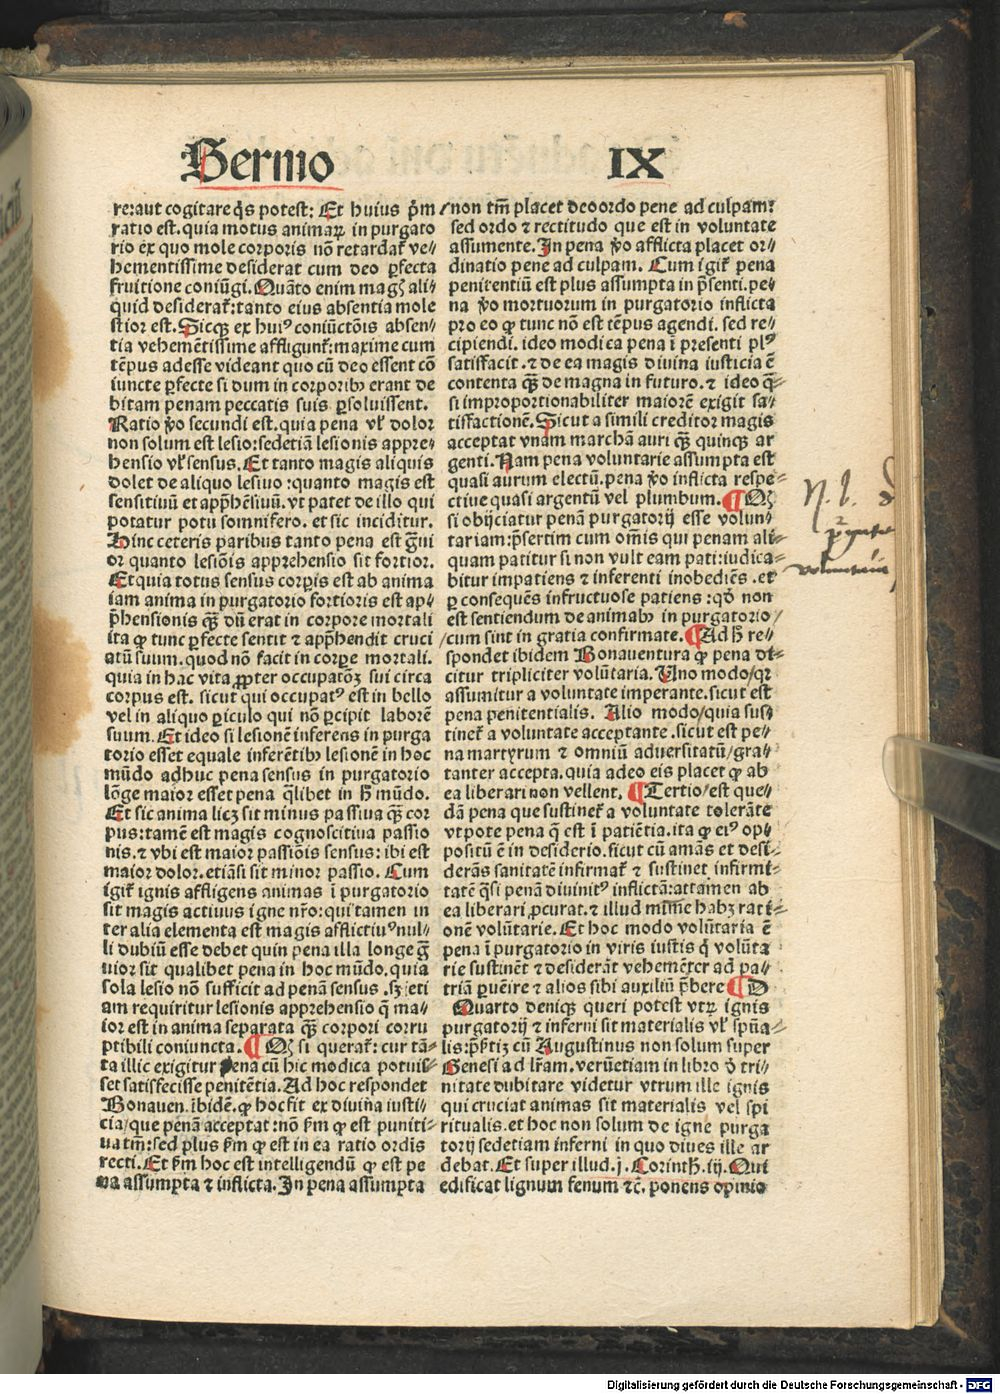 Sermo IX
re:aut cogitare q̄s potest: Et huius p̄m
ratio est. quia motus animaꝝ in purgato
rio ex quo mole corporis nō retardat̄ ve⸗
hementissime desiderat cum deo ꝑfecta
fruitione coniūgi. Quāto enim magꝭ ali⸗
quid desiderat̄: tanto eius absentia mole
stior est. Sicqꝫ ex huiꝰ coniūctōis absen⸗
tia vehemētissime affligunt̄: maxime cum
tēpus adesse videant quo cū deo essent cō
iuncte ꝑfecte si dum in corporibꝫ erant de
bitam penam peccatis suis ꝑsoluissent.
Ratio ꝟo secundi est. quia pena vl̄ dolor
non solum est lesio: sed etiā lesionis appre⸗
hensio vl̄ sensus. Et tanto magis aliquis
dolet de aliquo lesiuo: quanto magis est
sensitiuū et app̄hēsiuū. vt patet de illo qui
potatur potu somnifero. et sic inciditur.
Hinc ceteris paribus tanto pena est ḡui
or quanto lesiōis apprehensio sit fortior.
Et quia totus sensus corꝑis est ab anima
iam anima in purgatorio fortioris est ap⸗
p̄hensionis qꝫ̄ dū erat in corpore mortali
ita ꝙ tunc ꝑfecte sentit ⁊ app̄hendit cruci
atū suum. quod nō facit in corꝑe mortali.
quia in hac vita ꝓpter occupatōꝫ sui circa
corpus est. sicut qui occupatꝰ est in bello
vel in aliquo ꝑiculo qui nō ꝑcipit laborē
suum. Et ideo si lesionē inferens in purga
torio esset equale inferētibꝫ lesionē in hoc
mūdo adhuc pena sensus in purgatorio
lōge maior esset pena q̄libet in h̄ mūdo.
Et sic anima licꝫ sit minus passiua qꝫ̄ cor
pus: tamē est magis cognoscitiua passio
nis. ⁊ vbi est maior passiōis sensus: ibi est
maior dolor. etiāsi sit minor passio. Cum
igit̄ ignis affligens animas ī purgatorio
sit magis actiuus igne nr̄o: qui tamen in
ter alia elementa est magis afflictiuꝰ nul⸗
li dubiū esse debet quin pena illa longe ḡ
uior sit qualibet pena in hoc mūdo. quia
sola lesio nō sufficit ad penā sensus. sꝫ eti
am requiritur lesionis apprehensio q̄ ma⸗
ior est in anima separata qꝫ̄ corpori corru
ptibili coniuncta. ¶ Qꝭ si querat̄: cur tā⸗
ta illic exigitur pena cū hic modica potuis⸗
set satisfecisse penitētia. Ad hoc respondet
Bonauen. ibidē. ꝙ hoc fit ex diuina iusti⸗
cia/que penā acceptat: nō s̄m ꝙ est puniti⸗
ua tm̄: sed plus s̄m ꝙ est in ea ratio ordīs
recti. Et s̄m hoc est intelligendū ꝙ est pe
na assumpta ⁊ inflicta. In pena assumpta
non tm̄ placet deo ordo pene ad culpam:
sed ordo ⁊ rectitudo que est in voluntate
assumente. In pena ꝟo afflicta placet or⸗
dinatio pene ad culpam. Cum igit̄ pena
penitentiū est plus assumpta in p̄senti. pe⸗
na ꝟo mortuorum in purgatorio inflicta
pro eo ꝙ tunc nō est tēpus agendi. sed re⸗
cipiendi. ideo modica pena ī presenti plꝰ
satisfacit. ⁊ de ea magis diuina iusticia ē
contenta qꝫ̄ de magna in futuro. ⁊ ideo q̄⸗
si improportionabiliter maiorē exigit sa⸗
tisfactionē. Sicut a simili creditor magis
acceptat vnam marchā auri qꝫ̄ quinqꝫ ar
genti. Nam pena voluntarie assumpta est
quasi aurum electū. pena ꝟo inflicta respe⸗
ctiue quasi argentū vel plumbum. ¶ Qꝭ
si obijciatur penā purgatorij esse volun⸗
tariam: p̄sertim cum om̄is qui penam ali⸗
quam patitur si non vult eam pati: iudica⸗
bitur impatiens ⁊ inferenti inobediēs. et
ꝑ consequēs infructuose patiens: qd̄ non
est sentiendum de animabꝫ in purgatorio/
cum sint in gratia confirmate. ¶ Ad h̄ re⸗
spondet ibidem Bonauentura ꝙ pena di⸗
citur tripliciter volūtaria. Uno modo/qꝛ
assumitur a voluntate imperante. sicut est
pena penitentialis. Alio modo/quia sus⸗
tinet̄ a voluntate acceptante. sicut est pe⸗
na martyrum ⁊ omniū aduersitatū/gra⸗
tanter accepta. quia adeo eis placet ꝙ ab
ea liberari non vellent. ¶ Tertio/est que⸗
dā pena que sustinet̄ a voluntate tolerāte
vt pote pena q̄ est ī patiētia. ita ꝙ eiꝰ op⸗
positū ē in desiderio. sicut cū amās et desi⸗
derās sanitatē infirmat̄ ⁊ sustinet infirmi⸗
tatē q̄si penā diuinitꝰ inflictā: attamen ab
ea liberari ꝓcurat. ⁊ illud mīme habꝫ rati⸗
onē volūtarie. Et hoc modo volūtaria ē
pena ī purgatorio in viris iustis q̇ volūta
rie sustinēt ⁊ desiderāt vehemēter ad pa⸗
triā ꝑuēire ⁊ alios sibi auxiliū p̄bere ¶ D
Quarto deniqꝫ queri potest vtꝝ ignis
purgatorij ⁊ inferni sit materialis vl̄ sp̄ua⸗
lis: p̄s̄tiꝫ cū Augustinus non solum super
Genesi ad lr̄am. verūetiam in libro d̄ tri⸗
nitate dubitare videtur vtrum ille ignis
qui cruciat animas sit materialis vel spi
ritualis. et hoc non solum de igne purga
torij sed etiam inferni in quo diues ille ar
debat. Et super illud. j. Corinth̄. iij. Qui
edificat lignum fenum ⁊c̄. ponens opinio